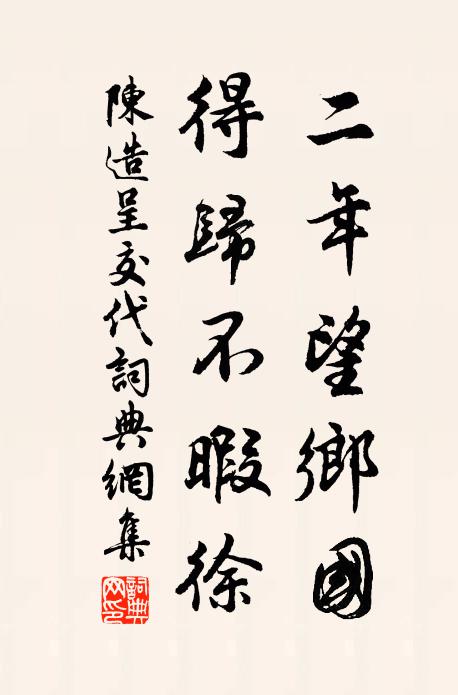 二年望鄉國
得歸不暇徐
陳造呈交代詞典網集
詞典网印